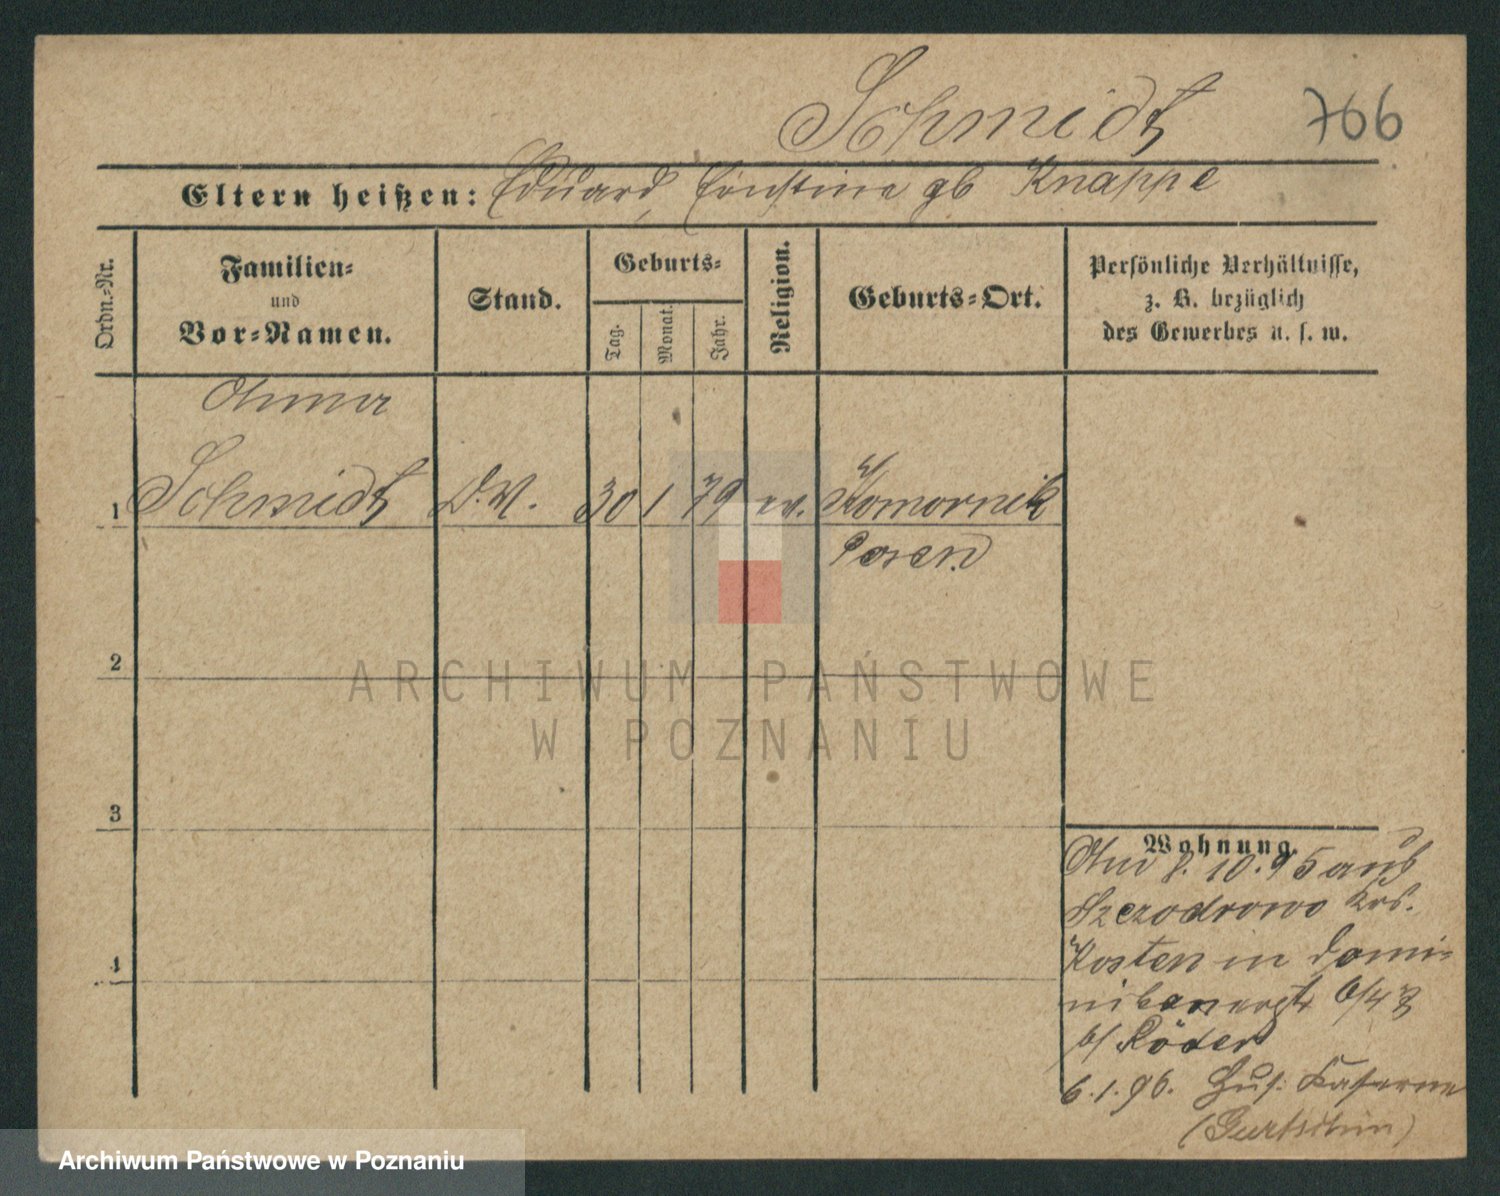 Schmidt 766
Eltern heißen: Eduard, Ernstine gb Knappe
Ordn.-Nr.
Familien-
und
Vor-Namen.
Stand.
Geburts-
Tag.
Monat.
Jahr.
Religion.
Geburts-Ort.
Persönliche Verhältnisse,
z. B. bezüglich
des Gewerbes u. s. w.
Anna
1 Schmidt D.M. 30 1 79 ev. Komornik
Posen
2
ARCHIWUM PAŃSTWOWE
W POZNANIU
3
Wohnung.
8. 10. 95 aus
Szczodrowo Krs.
4
Kosten in Domi-
nikanergt 6/4
b/ Röder
6.1.96. Hus. Kaserne
(Gurtschin)
Archiwum Państwowe w Poznaniu